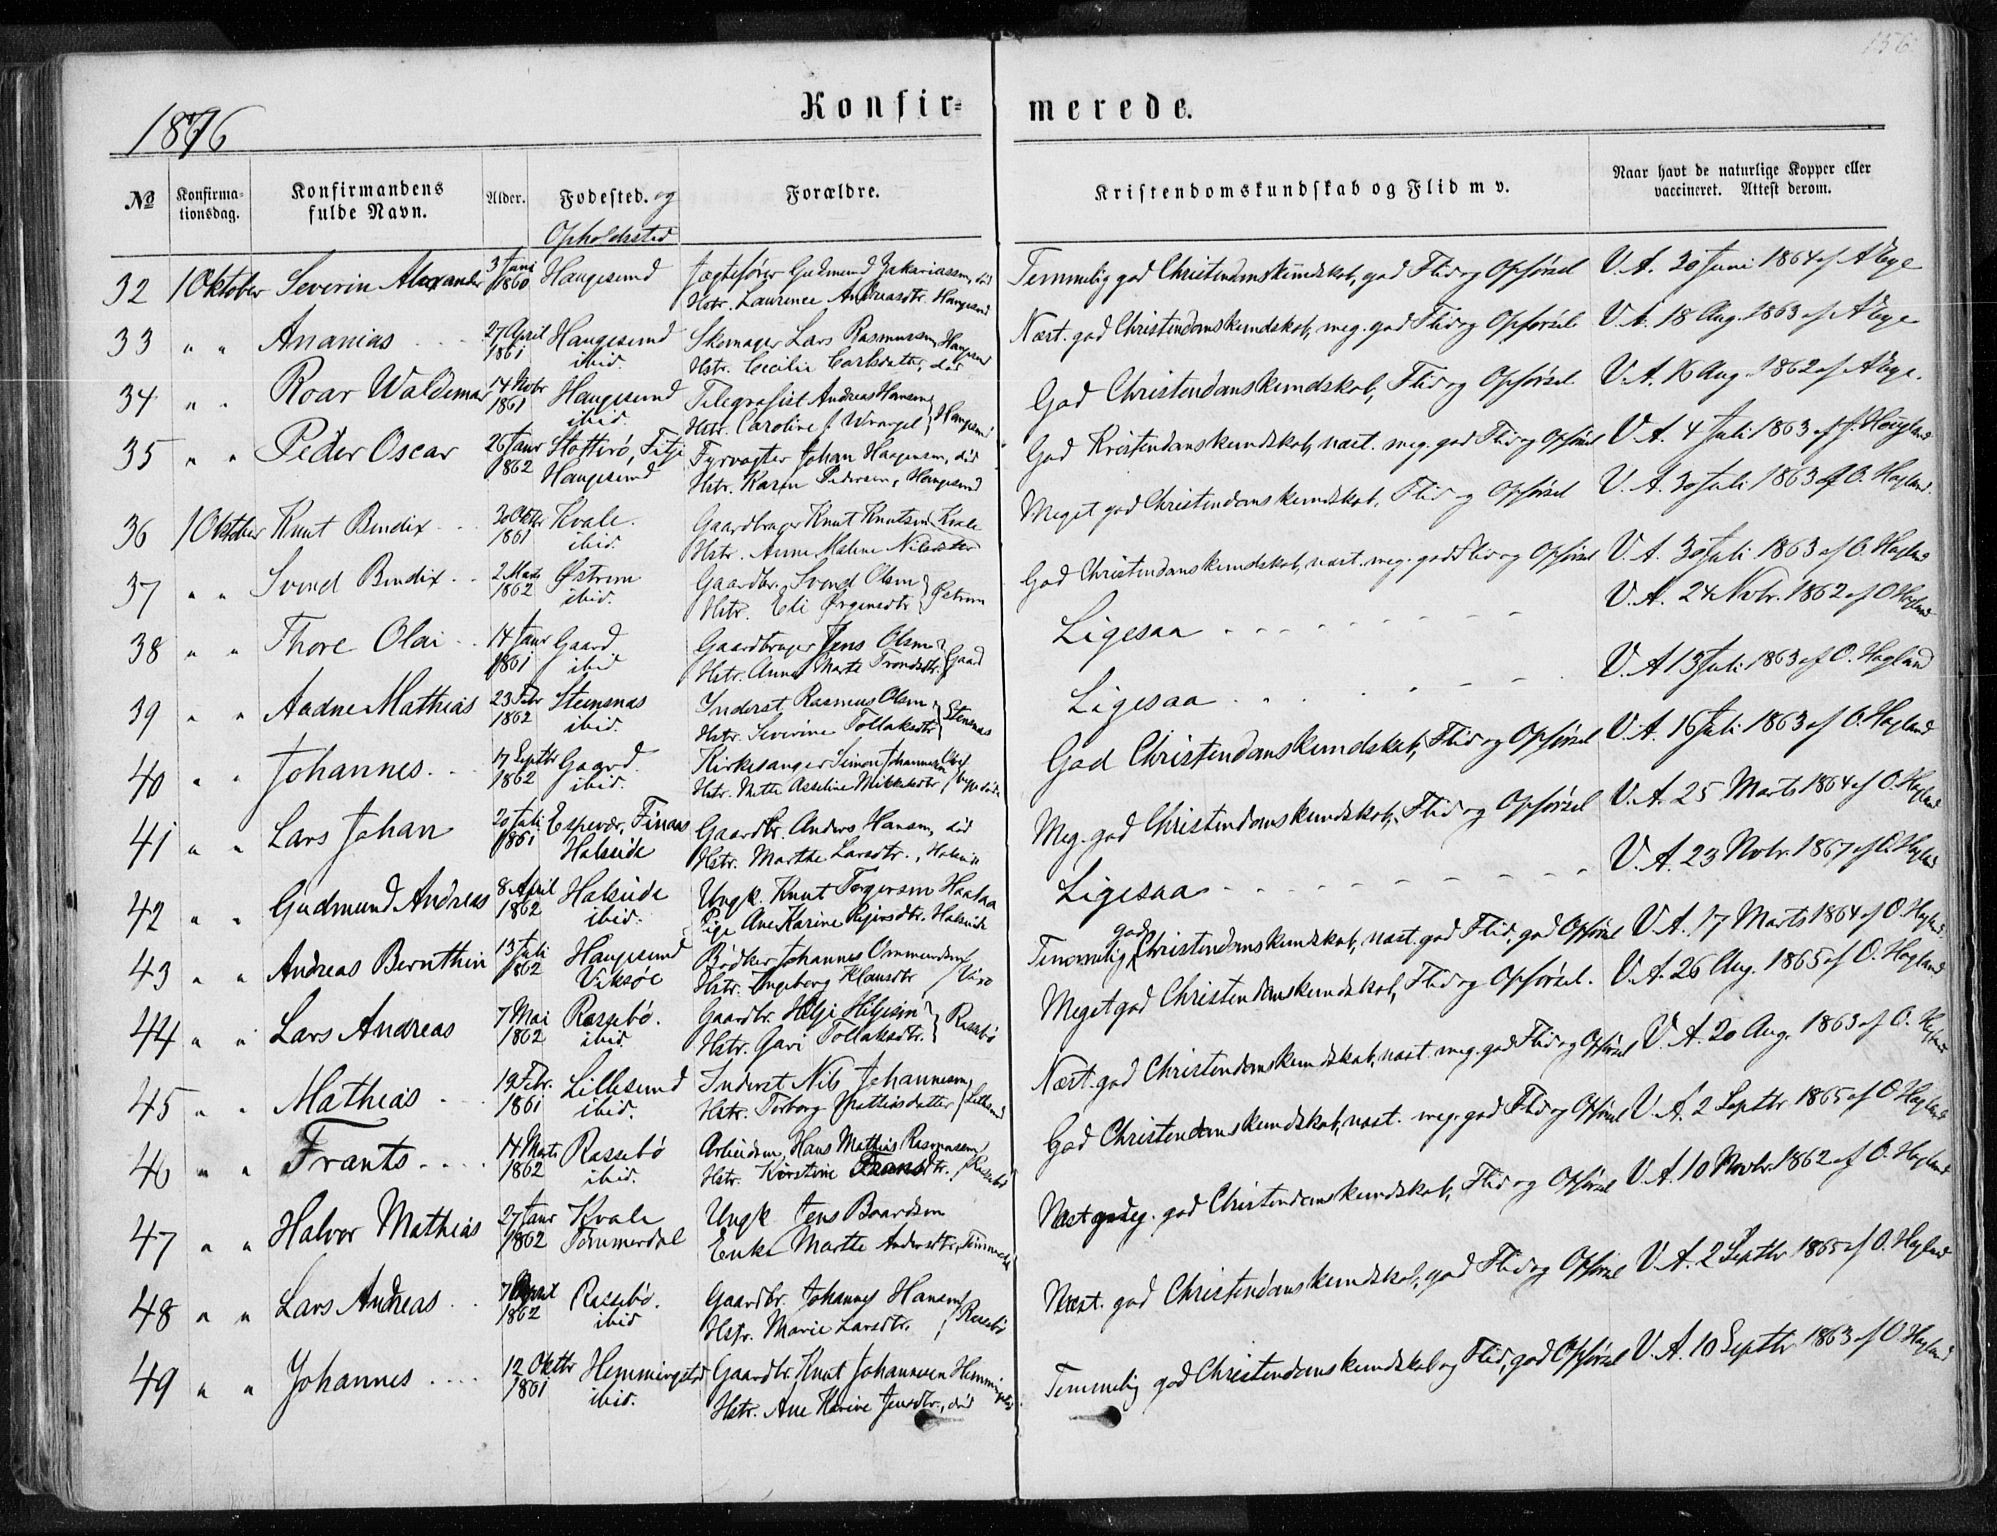 156
Konfirmerede.
1876
No
Konfirmationsdag.
Konfirmandens fulde Navn.
Alder.
Fødested. og Opholdssted
Forældre.
Kristendomskundskab og Flid m v.
Naar havt de naturlige Kopper eller vaccineret. Attest derom.
32 1 Oktober Severin Alexander 3 Juni 1860 Haugesund Jagtefører Gudmund Zakariassen, død Hstr. Laurence Andreasdtr. Haugesund Temmelig god Christendomskundskab, god Flid og Opførsel V. A. 30 Juni 1864 af A Eye
33 " " Ananias 27 April 1861 Haugesund ibid. Skomager Lars Rasmussen Haugesund Hstr. Cecilie Carlsdatter, død Næst. god Christendomskundskab, meg. god Flid og Opførsel V. A. 18 Aug. 1863 af A Eye
34 " " Roar Waldemar 14 Novbr 1861 Haugesund ibid. Telegrafist Andreas Hansen Hstr. Caroline f. Wrangel Haugesund God Christendomskundskab, Flid og Opførsel V. A. 16 Aug. 1862 af A Eye.
35 " " Peder Oscar 26 Janr 1862 Stotterø, Fitje Haugesund Fyrvogter Johan Haagensen, død Hstr. Karen Pedersen, Haugesund God Kristendomskundskab, næst. meg. god Flid og Opførsel V. A. 4 Juli 1863 af J. Hougland
36 1 Oktober Knut Bendix 20 Oktbr 1861 Kvale. ibid. Gaardbruger Knut Knutsen Kvale Hstr. Anne Malene Nilsdatter Meget god Christendomskundskab, Flid og Opførsel V. A. 30 Juli 1863 af O. Hagland
37 " " Svend Bendix 2 Marts 1862 Østrem ibid. Gaardbr. Svend Olsen Hstr. Eli Ørgensdtr Østrem God Christendomskundskab, næst. meg. god Flid og Opførsel V. A. 30 Juli 1863 af O. Hagland
38 " " Thore Olai 14 Janr 1861 Gaard ibid Gaardbruger Jens Olsen Hstr. Anne Marte Trondsdtr. Gaard Ligesaa V. A. 24 Novbr. 1862 af O Hagland
39 " " Aadne Mathias 23 Febr 1862 Steinsnæs ibid. Inderst Rasmus Olsen Hstr. Severine Tollaksdtr Stensnæs Ligesaa V. A 13 Juli 1863 af O. Hagland
40 " " Johannes 17 Septbr 1862 Gaard. ibid. Kirkesanger Simon Johannesen Hstr. Mette Asseline Mikkelsdtr God Christendomskundskab, Flid og Opførsel V. A. 16 Juli 1863 af O. Hagland
41 " " Lars Johan 20 Juli 1861 Espevær, Finaas Halseide Gaardbr. Anders Hansen, død Hstr. Marthe Larsdtr., Halseide Meg. god Christendomskundskab, Flid og Opførsel V. A. 25 Marts 1864 af O. Hagland
42 " " Gudmund Andreas 8 April 1862 Halseide ibid. Ungk. Knut Torgersen Haalaa Pige Ane Karine Reiersdtr. Halseide Ligesaa V. A. 23 Novbr. 1867 af O. Hagland
43 " " Andreas Bernthin 13 Juli 1862 Haugesund Viksøe Bødker Johannes Ommundsen Hstr. Ingeborg Klausdtr Temmelig god Christendomskundskab, næst. god Flid, god Opførsel V. A. 17 Marts 1864 af O. Hagland
44 " " Lars Andreas 7 Mai 1862 Røssebø. ibid. Gaardbr. Helje Heljesen Hstr. Gari Tollaksdtr. Røssebø Meget god Christendomskundskab, Flid og Opførsel. V. A. 26 Aug. 1865 af O. Hagland
45 " " Mathias 19 Febr. 1861 Lillesund ibid. Inderst Nils Johannesen Hstr. Torborg Mathiasdatter Lillesund Næst. god Christendomskundskab, næst. meg. god Flid og Opførsel V. A. 20 Aug. 1863 af O. Hagland
46 " " Frants 14 Marts 1862 Røssebø ibid. Arbeidsm. Hans Mathias Rasmussen Hstr. Kirstine Fransdtr. Røssebø God Christendomskundskab, næst. meg. god Flid og Opførsel V. A. 2 Septbr 1865 af O Hagland
47 " " Halvor Mathias 27 Janr 1862 Kvale Tømmerdal Ungk. Jens Baardsen Enke Marthe Andersdtr, Tømmerdal Næst meg. god Christendomskundskab, Flid og Opførsel V. A. 10 Novbr 1862 af O. Hagland
48 " " Lars Andreas 7 April 1862 Røssebø. ibid Gaardbr. Johannes Hansen Hstr. Marie Larsdtr. Røssebø Næst. god Christendomskundskab, god Flid og Opførsel V. A. 2 Septbr 1865 af O. Hagland
49 " " Johannes 12 Oktbr 1861 Hemmingstad ibid. Gaardbr. Knut Johannesen Hemmingstad Hstr. Ane Karine Jensdtr., død Temmelig god Christendomskundskab og Flid, god Opførsel V. A. 10 Septbr 1863 af O. Hagland